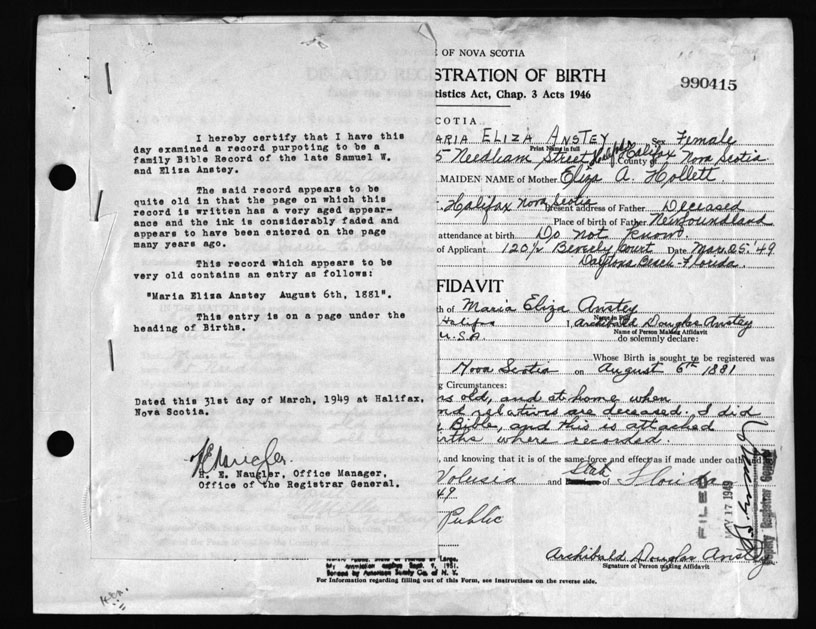 I hereby certify that I have this
day examined a record purpoting to be a
family Bible Record of the late Samuel W.
and Eliza Anstey.
The said record appears to be
quite old in that the page on which this
record is written has a very aged appear-
ance and the ink is considerably faded and
appears to have been entered on the page
many years ago.
This record which appears to be
very old contains an entry as follows:
"Maria Eliza Anstey August 6th, 1881".
This entry is on a page under the
heading of Births.
Dated this 31st day of March, 1949 at Halifax,
Nova Scotia.
H. E. Naugler, Office Manager,
Office of the Registrar General.
OF NOVA SCOTIA
STRATION OF BIRTH
990415
tistics Act, Chap. 3 Acts 1946
COTIA
ARIA ELIZA ANSTEY Sex Female
Print Name in full
5 Needham Street Halifax County Halifax Nova Scotia
MAIDEN NAME of Mother Eliza A. Hollett
Halifax Nova Scotia Present address of Father Deceased
Place of birth of Father Newfoundland
attendance at birth Do not know
of Applicant 120½ Beverly Court Date Mar. 25. '49
Daytona Beach - Florida.
FIDAVIT
th of Maria Eliza Anstey
Name in Full
Halifax I, Archibald Douglas Anstey
Name of Person Making Affidavit
U.S.A. do solemnly declare:
Whose Birth is sought to be registered was
Nova Scotia on August 6th 1881
g Circumstances:
rs old, and at home when
nd relatives are deceased. I did
Bible, and this is attached
rths where recorded.
, and knowing that it is of the same force and effect as if made under oath and
Volusia and State of Florida
49
Public
FILED
MAY 17 1949
Deputy Registrar General
Archibald Douglas Anstey
Signature of Person making Affidavit
My commission expires Sept. 9, 1951.
Bonded by American Surety Co. of N. Y.
For Information regarding filling out of this Form, see instructions on the reverse side.